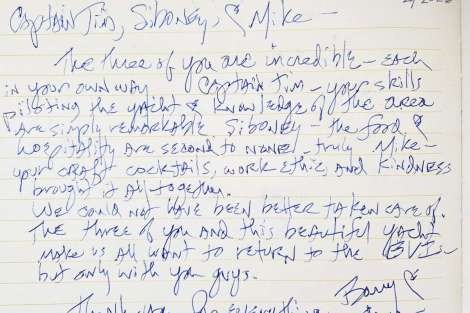 Captain Jim, Siboney, & Mike -
The three of you are incredible - each
in your own way. Captain Jim - your skills
piloting the yacht & knowledge of the area
are simply remarkable Siboney - the food &
hospitality are second to none - truly Mike -
your craft cocktails, work ethic, and kindness
brought it all together.
We could not have been better taken care of.
The three of you and this beautiful yacht
make us all want to return to the BVIs
but only with you guys.
Barry &
Thank you for everything